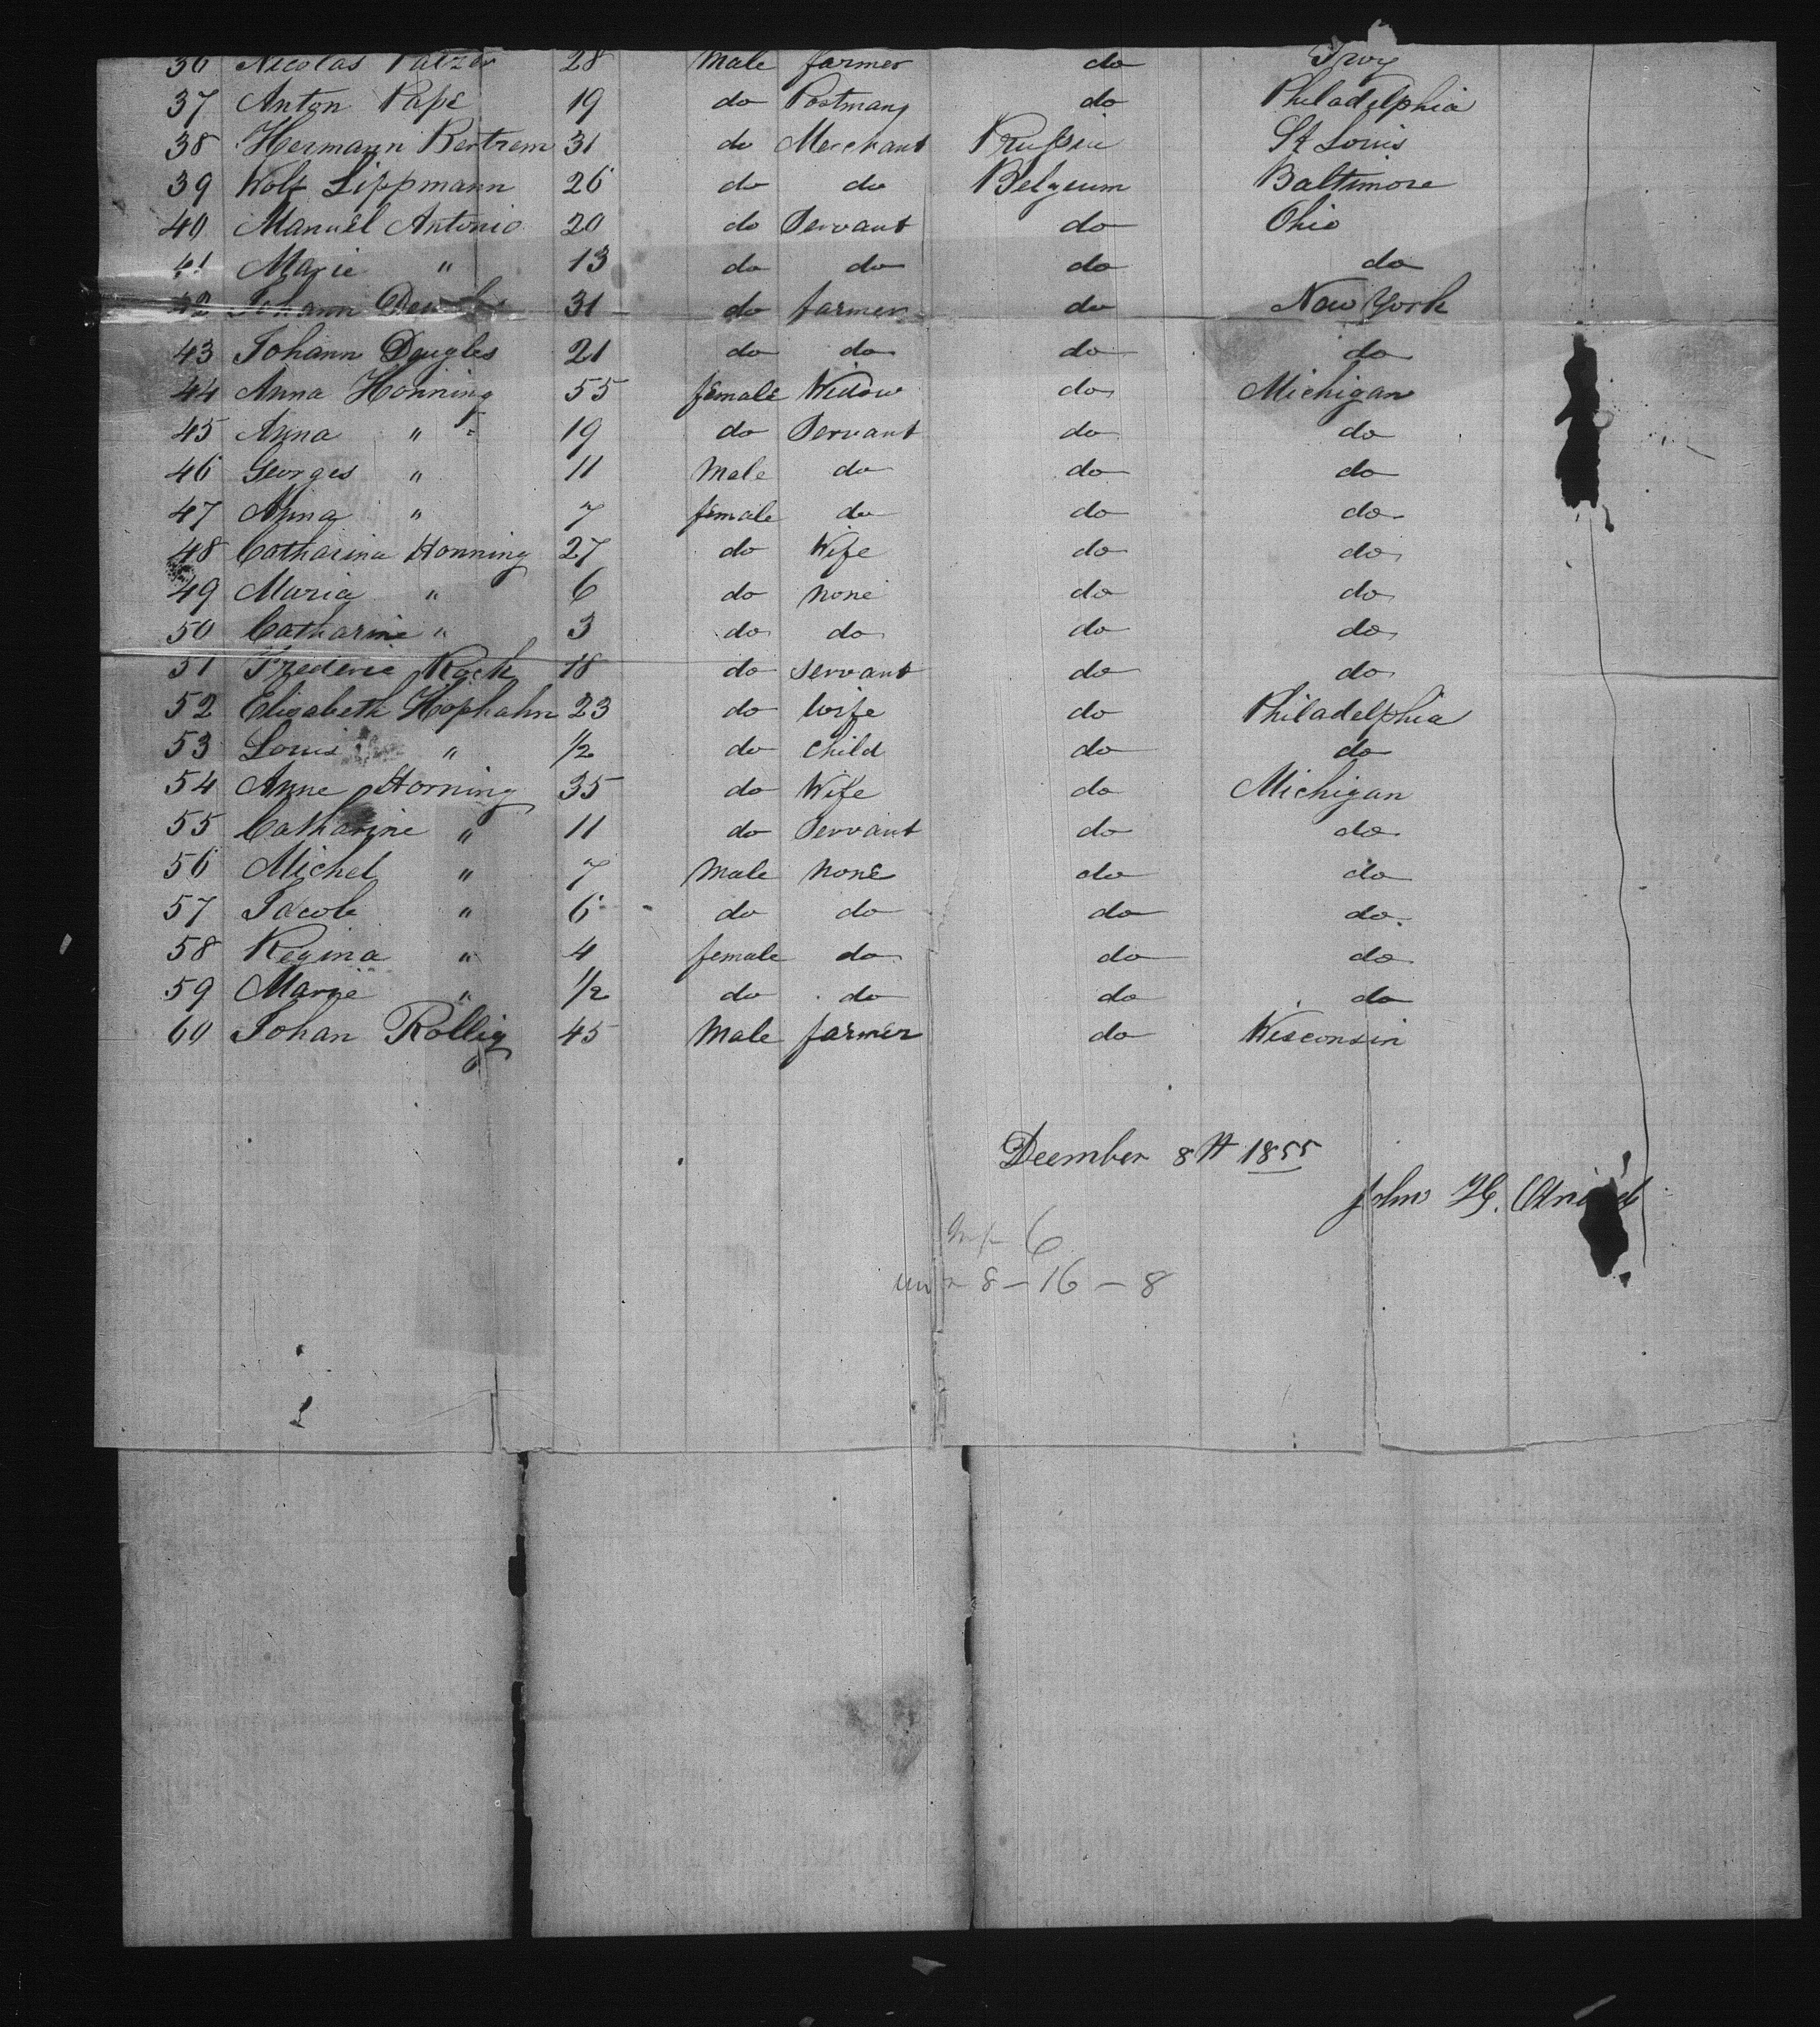 36 Nicolas Patzer 28 Male farmer do Troy
37 Anton Pape 19 do Postmang do Philadelphia
38 Hermann Bertrem 31 do Merchant Prussia St Louis
39 Wolf Lippmann 26 do do Belgium Baltimore
40 Manuel Antonio 20 do Servant do Ohio
41 Marie " 13 do do do do
42 Johann 31 do farmer do New York
43 Johann Deugles 21 do do do do
44 Anna Honning 55 female Widow do Michigan
45 Anna " 19 do Servant do do
46 Georges " 11 Male do do do
47 Anna " 7 female do do do
48 Catharina Honning 27 do Wife do do
49 Maria " 6 do none do do
50 Catharine " 3 do do do do
51 Frederic Rock 18 do servant do do
52 Elisabeth Hophahn 23 do Wife do Philadelphia
53 Louis " 1/2 do child do do
54 Anne Horning 35 do Wife do Michigan
55 Catharine " 11 do Servant do do
56 Michel " 7 Male none do do
57 Jacob " 6 do do do do
58 Regina " 4 female do do do
59 Marie " 1/2 do do do do
60 Johan Rollig 45 Male farmer do Wisconsin
Deember 8th 1855
John
6
8 - 16 - 8